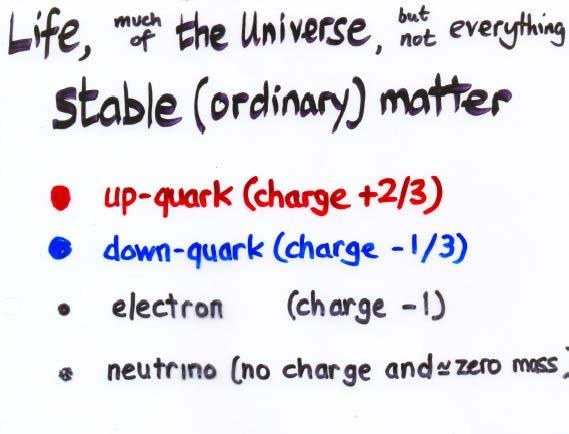 Life, much of the Universe, but not everything
stable (ordinary) matter
up-quark (charge +2/3)
down-quark (charge -1/3)
electron (charge -1)
neutrino (no charge and ≃ zero mass)